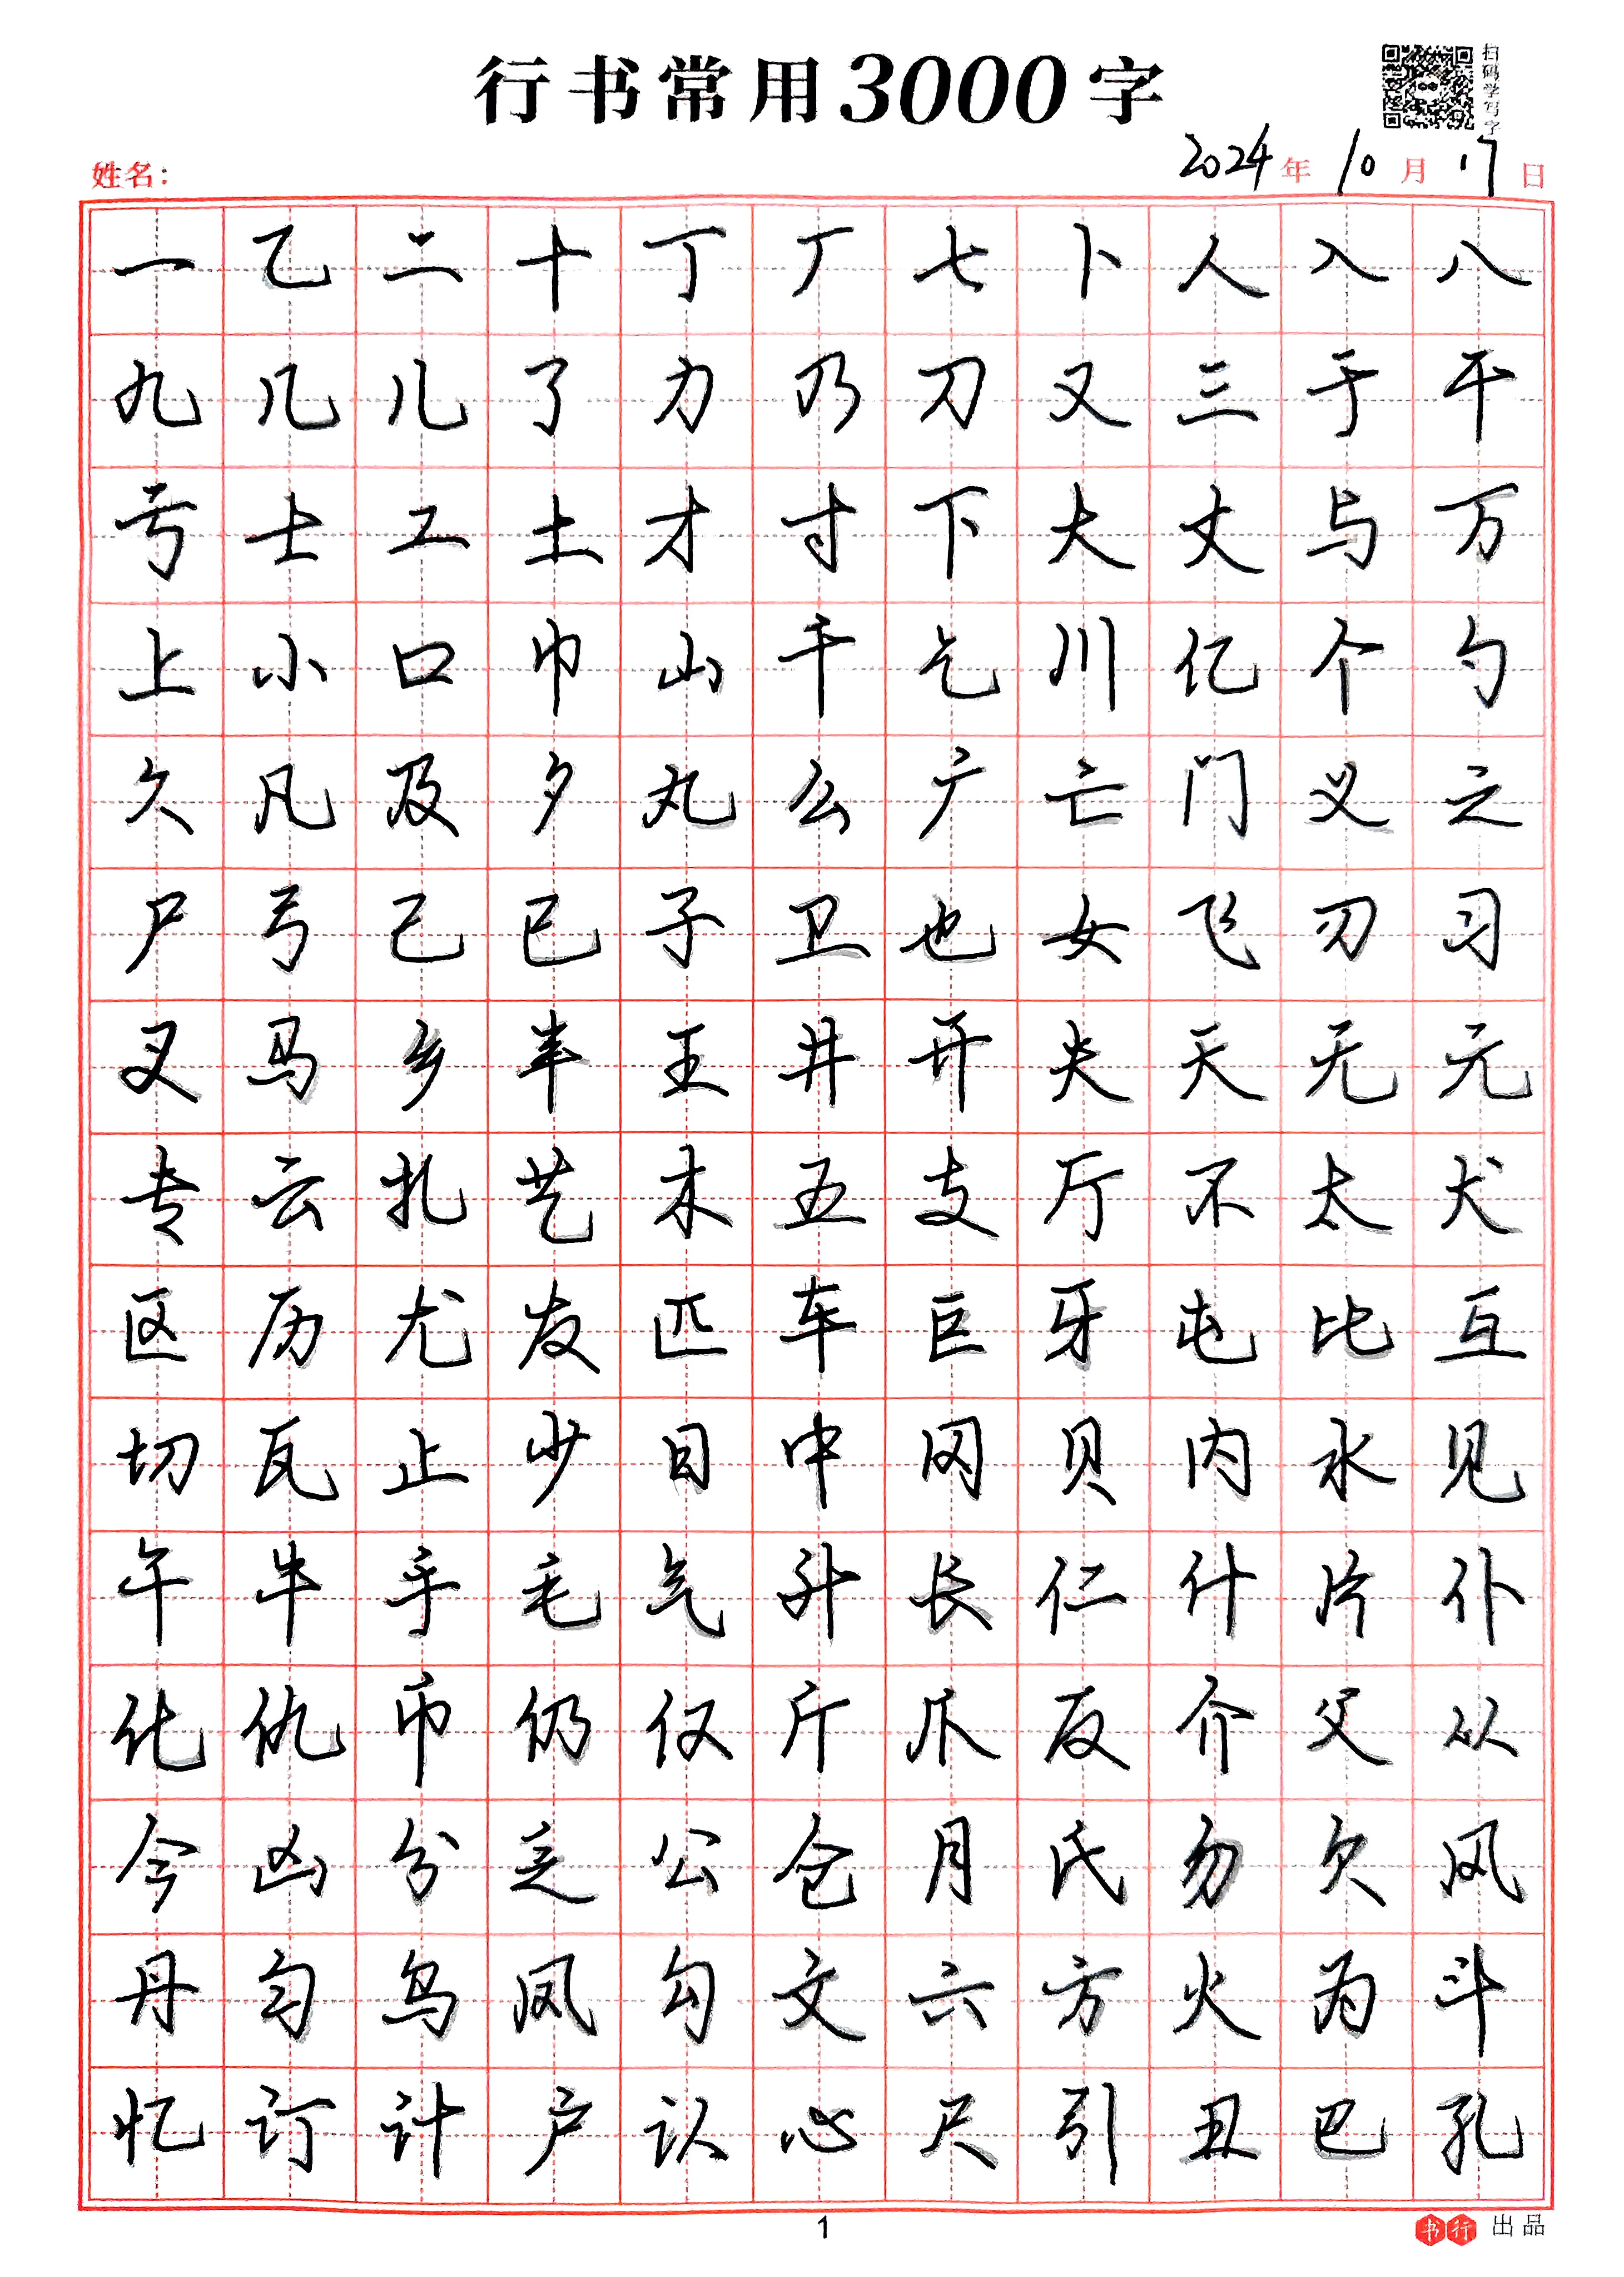 行书常用3000字
扫码学写字
姓名： 2024年10月17日
一乙二十丁厂七卜人入八
九几儿了力乃刀又三于干
亏士工土才寸下大丈与万
上小口巾山千乞川亿个勺
久凡及夕丸么广亡门义之
尸弓己已子卫也女飞刃习
叉马乡丰王井开夫天无元
专云扎艺木五支厅不太犬
区历尤友匹车巨牙屯比互
切瓦止少日中冈贝内水见
午牛手毛气升长仁什片仆
化仇币仍仅斤爪反介父从
今凶分乏公仓月氏勿欠风
丹匀乌凤勾文六方火为斗
忆订计户认心尺引丑巴孔
1
书行 出品